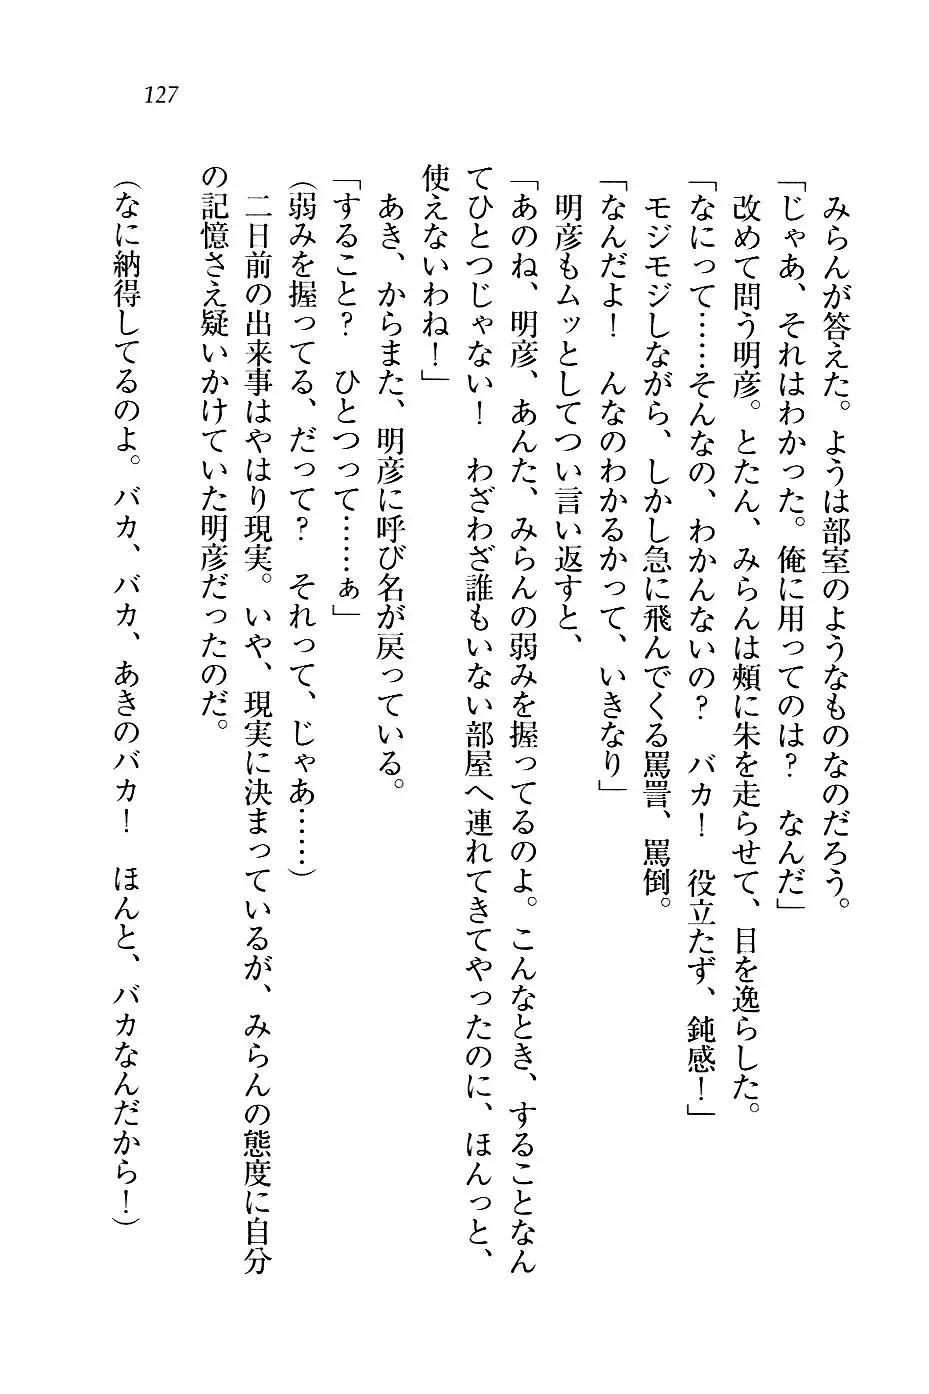 127
みらんが答えた。ようは部室のようなものなのだろう。
「じゃあ、それはわかった。俺に用ってのは？　なんだ」
改めて問う明彦。とたん、みらんは頰に朱を走らせて、目を逸らした。
「なにって……そんなの、わかんないの？　バカ！　役立たず、鈍感！」
モジモジしながら、しかし急に飛んでくる罵詈、罵倒。
「なんだよ！　んなのわかるかって、いきなり」
明彦もムッとしてつい言い返すと、
「あのね、明彦、あんた、みらんの弱みを握ってるのよ。こんなとき、することなん
てひとつじゃない！　わざわざ誰もいない部屋へ連れてきてやったのに、ほんっと、
使えないわね！」
あき、からまた、明彦に呼び名が戻っている。
「すること？　ひとつって……ぁ」
（弱みを握ってる、だって？　それって、じゃあ……）
二日前の出来事はやはり現実。いや、現実に決まっているが、みらんの態度に自分
の記憶さえ疑いかけていた明彦だったのだ。
（なに納得してるのよ。バカ、バカ、あきのバカ！　ほんと、バカなんだから！）